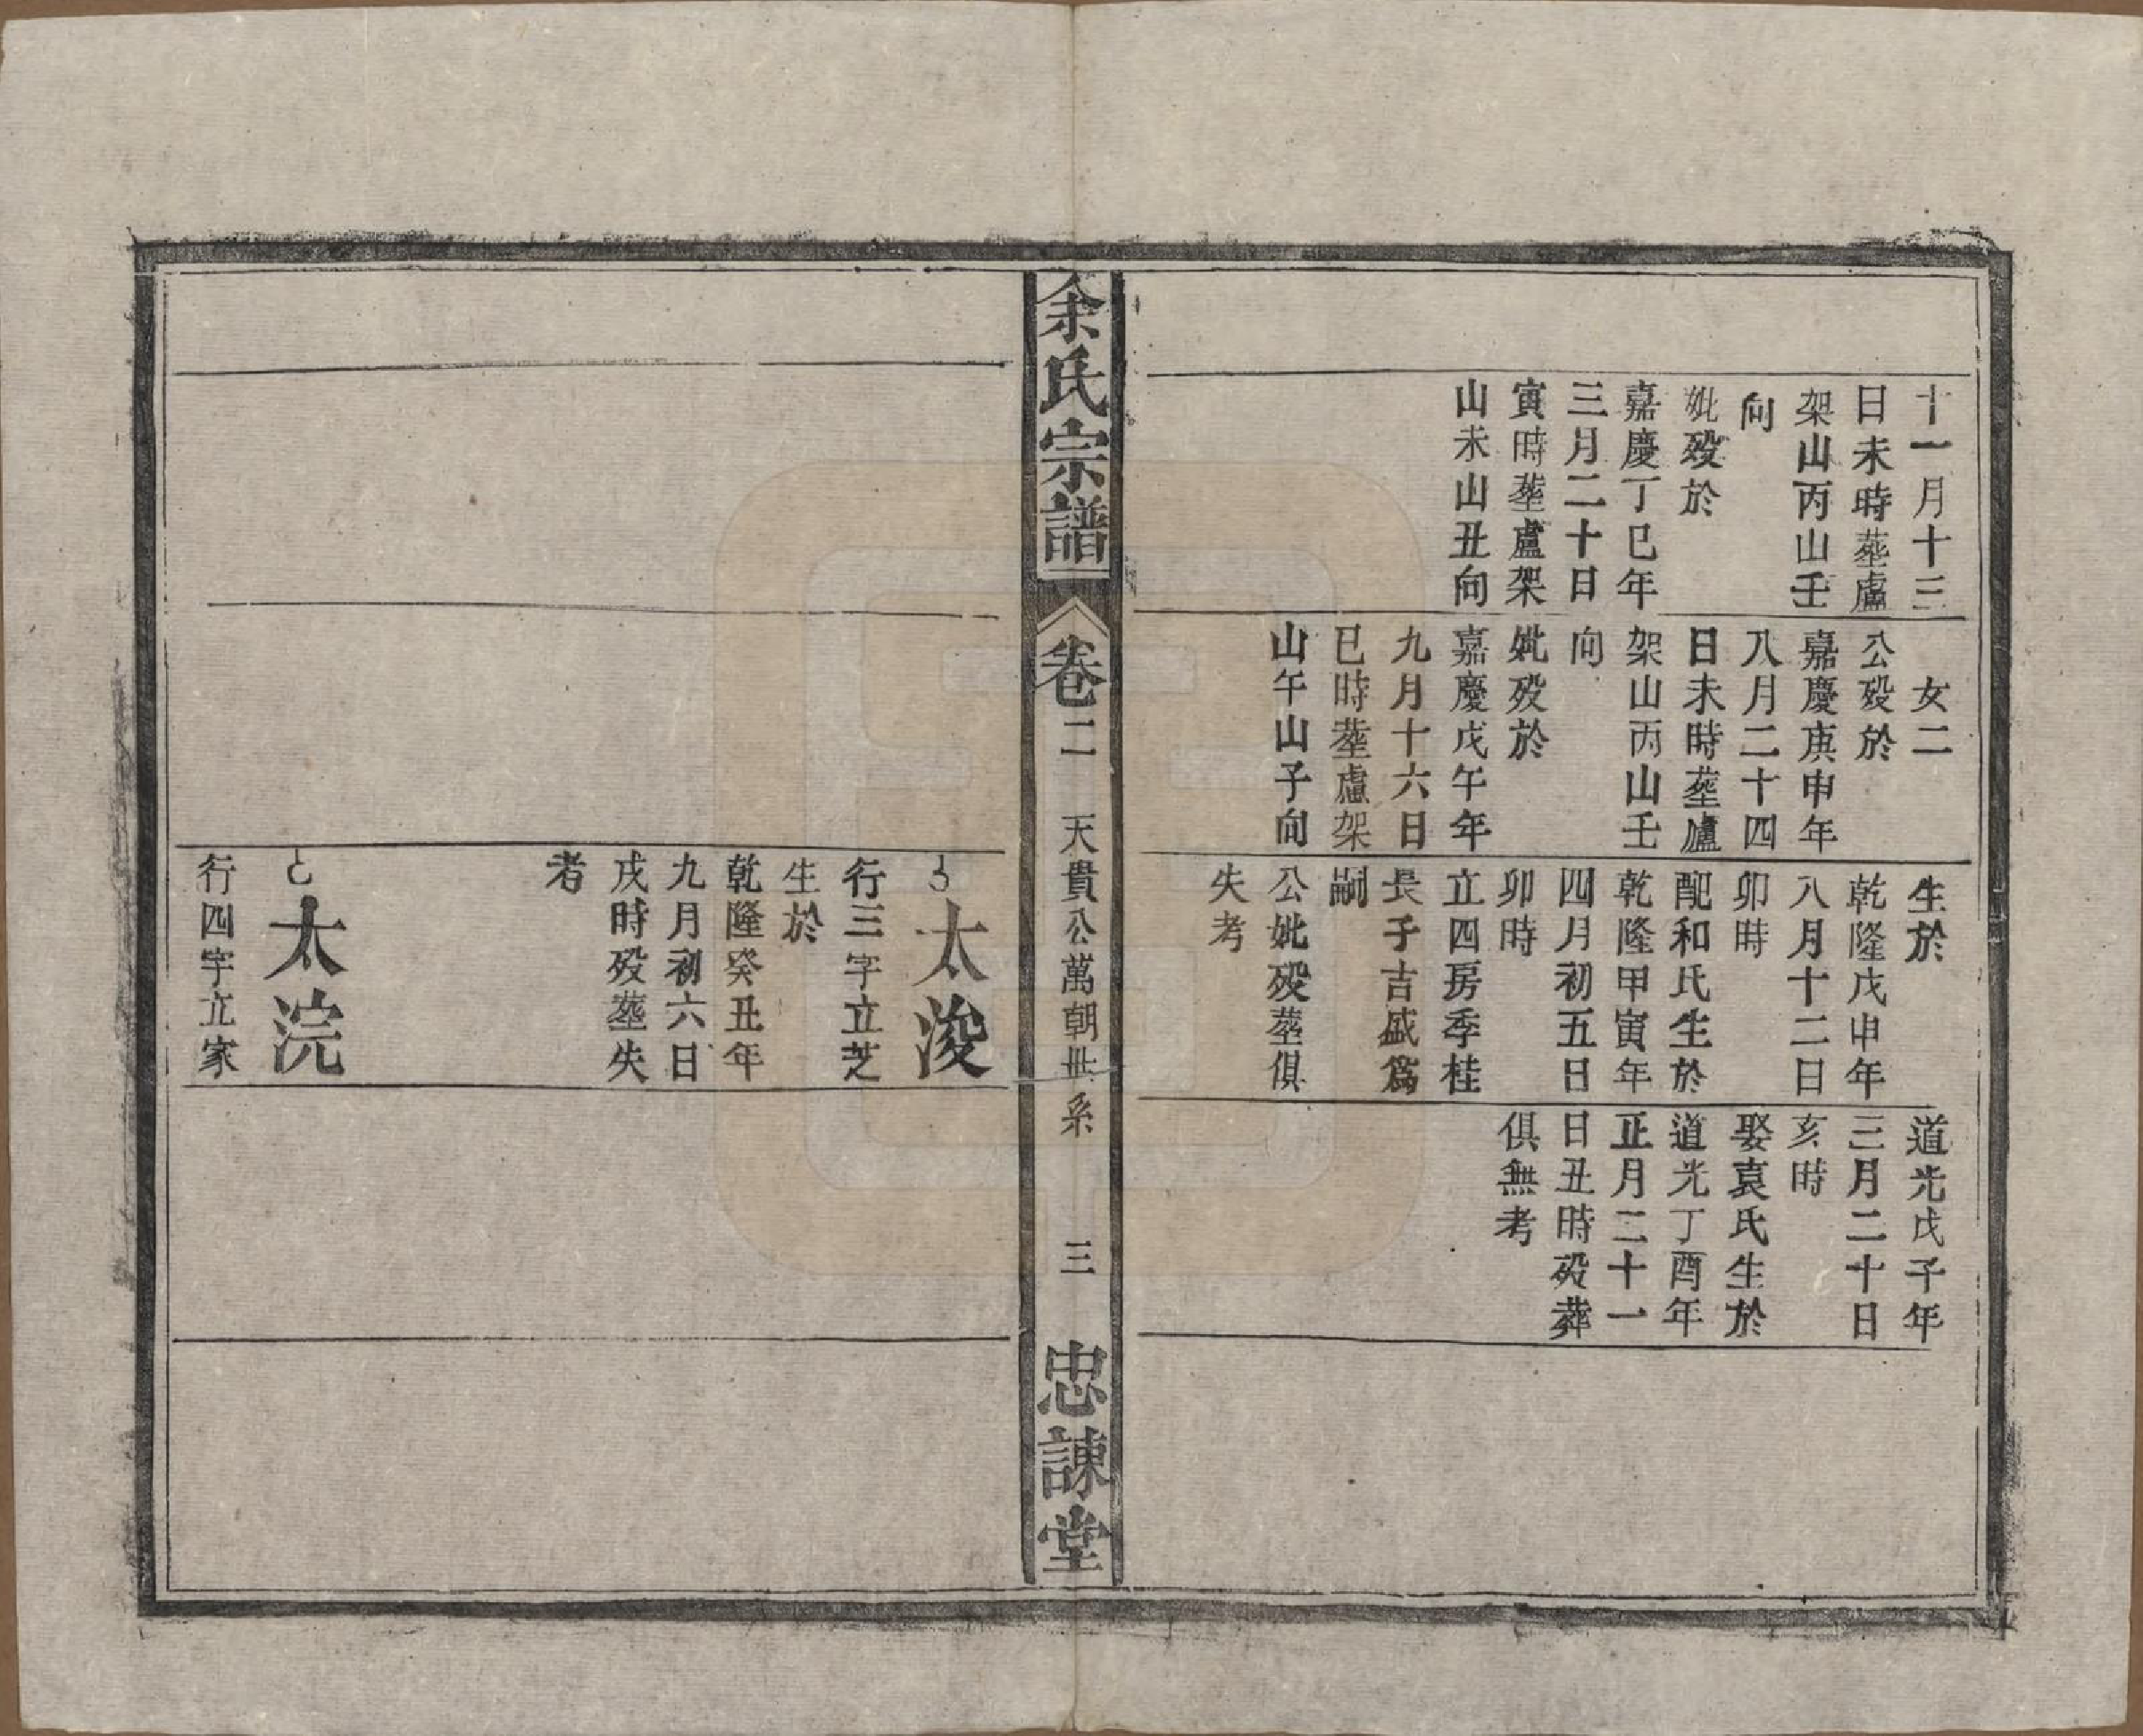 十一月十三
日未時塟盧
架山丙山壬
向
妣殁於
嘉慶丁巳年
三月二十日
寅時塟盧架
山未山丑向
女二
公殁於
嘉慶庚申年
八月二十四
日未時塟廬
架山丙山壬
向
妣殁於
嘉慶戊午年
九月十六日
巳時塟盧架
山午山子向
生於
乾隆戊申年
八月十二日
卯時
配和氏生於
乾隆甲寅年
四月初五日
卯時
立四房季桂
長子吉盛爲
嗣
公妣殁塟俱
失考
道光戊子年
三月二十日
亥時
娶袁氏生於
道光丁酉年
正月二十一
日丑時殁葬
俱無考
余氏宗譜
卷二
天貴公萬朝世系
三
忠諫堂
太浚
行三字立芝
生於
乾隆癸丑年
九月初六日
戌時殁塟失
考
太浣
行四字立家